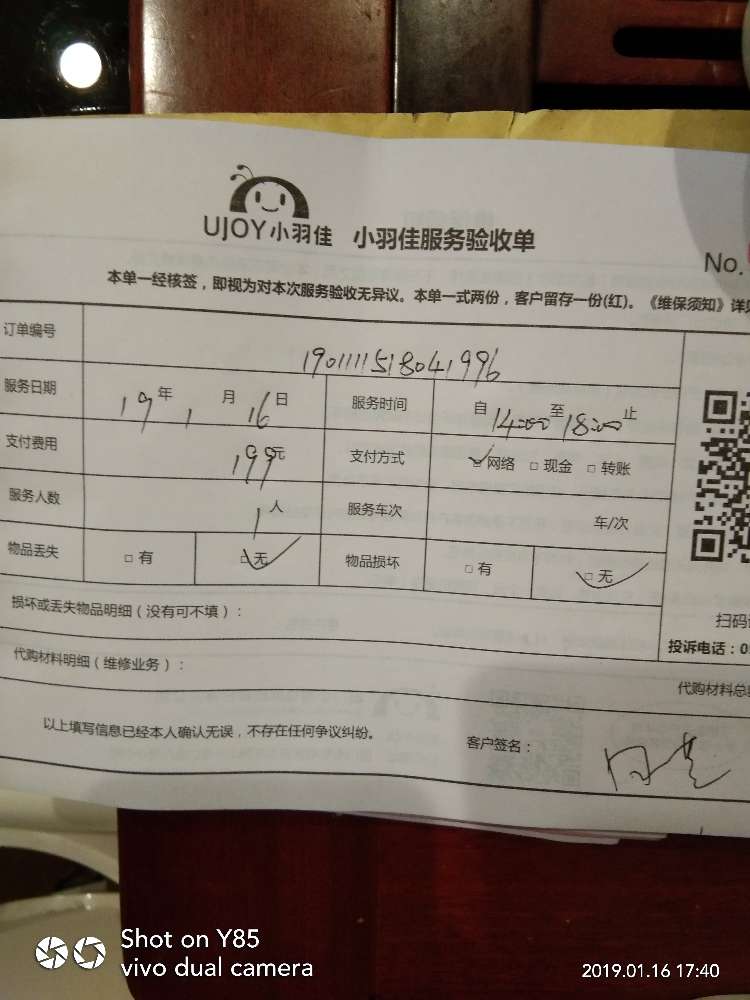 UJOY小羽佳 小羽佳服务验收单
No.
本单一经核签，即视为对本次服务验收无异议。本单一式两份，客户留存一份(红)。《维保须知》详见
订单编号 1901111518041996
服务日期 19年1月16日 服务时间 自14:00至18:00止
支付费用 199元 支付方式 ☑网络 □现金 □转账
服务人数 1人 服务车次 车/次
物品丢失 □有 ☑无 物品损坏 □有 ☑无
损坏或丢失物品明细（没有可不填）：
扫码
投诉电话：0
代购材料明细（维修业务）：
代购材料总
以上填写信息已经本人确认无误，不存在任何争议纠纷。
客户签名：
Shot on Y85
vivo dual camera
2019.01.16 17:40